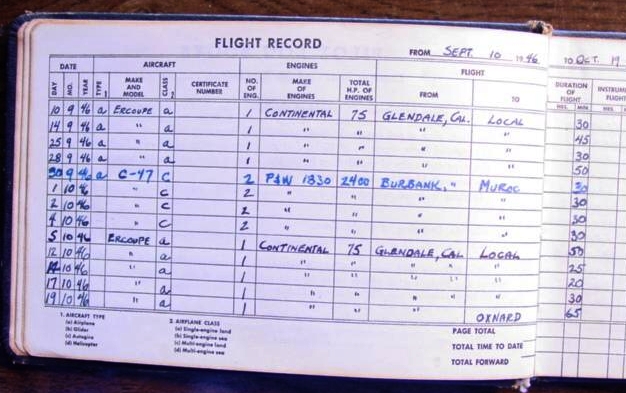 FLIGHT RECORD
FROM SEPT. 10 1946 TO OCT. 19
DATE AIRCRAFT ENGINES FLIGHT DURATION OF FLIGHT
DAY MO. YEAR TYPE 1 MAKE AND MODEL CLASS 2 CERTIFICATE NUMBER NO. OF ENG. MAKE OF ENGINES TOTAL H.P. OF ENGINES FROM TO HRS. MIN.
10 9 46 a ERCOUPE a 1 CONTINENTAL 75 GLENDALE, CAL. LOCAL 30
14 9 46 a " a 1 " " " " 45
25 9 46 a " a 1 " " " " 30
28 9 46 a " a 1 " " " " 50
30 9 46 a C-47 C 2 P&W 1830 2400 BURBANK, " MUROC 30
1 10 46 " C 2 " " " " 30
2 10 46 " C 2 " " " " 30
4 10 46 " C 2 " " " " 30
5 10 46 ERCOUPE a 1 CONTINENTAL 75 GLENDALE, CAL LOCAL 50
12 10 46 " a 1 " " " " " 25
10 46 " a 1 " " " " " 20
17 10 46 " a 1 " " " " 30
19 10 46 " a 1 " " " OXNARD 65
1. AIRCRAFT TYPE
(a) Airplane
(b) Glider
(c) Autogiro
(d) Helicopter
2. AIRPLANE CLASS
(a) Single-engine land
(b) Single-engine sea
(c) Multi-engine land
(d) Multi-engine sea
PAGE TOTAL
TOTAL TIME TO DATE
TOTAL FORWARD